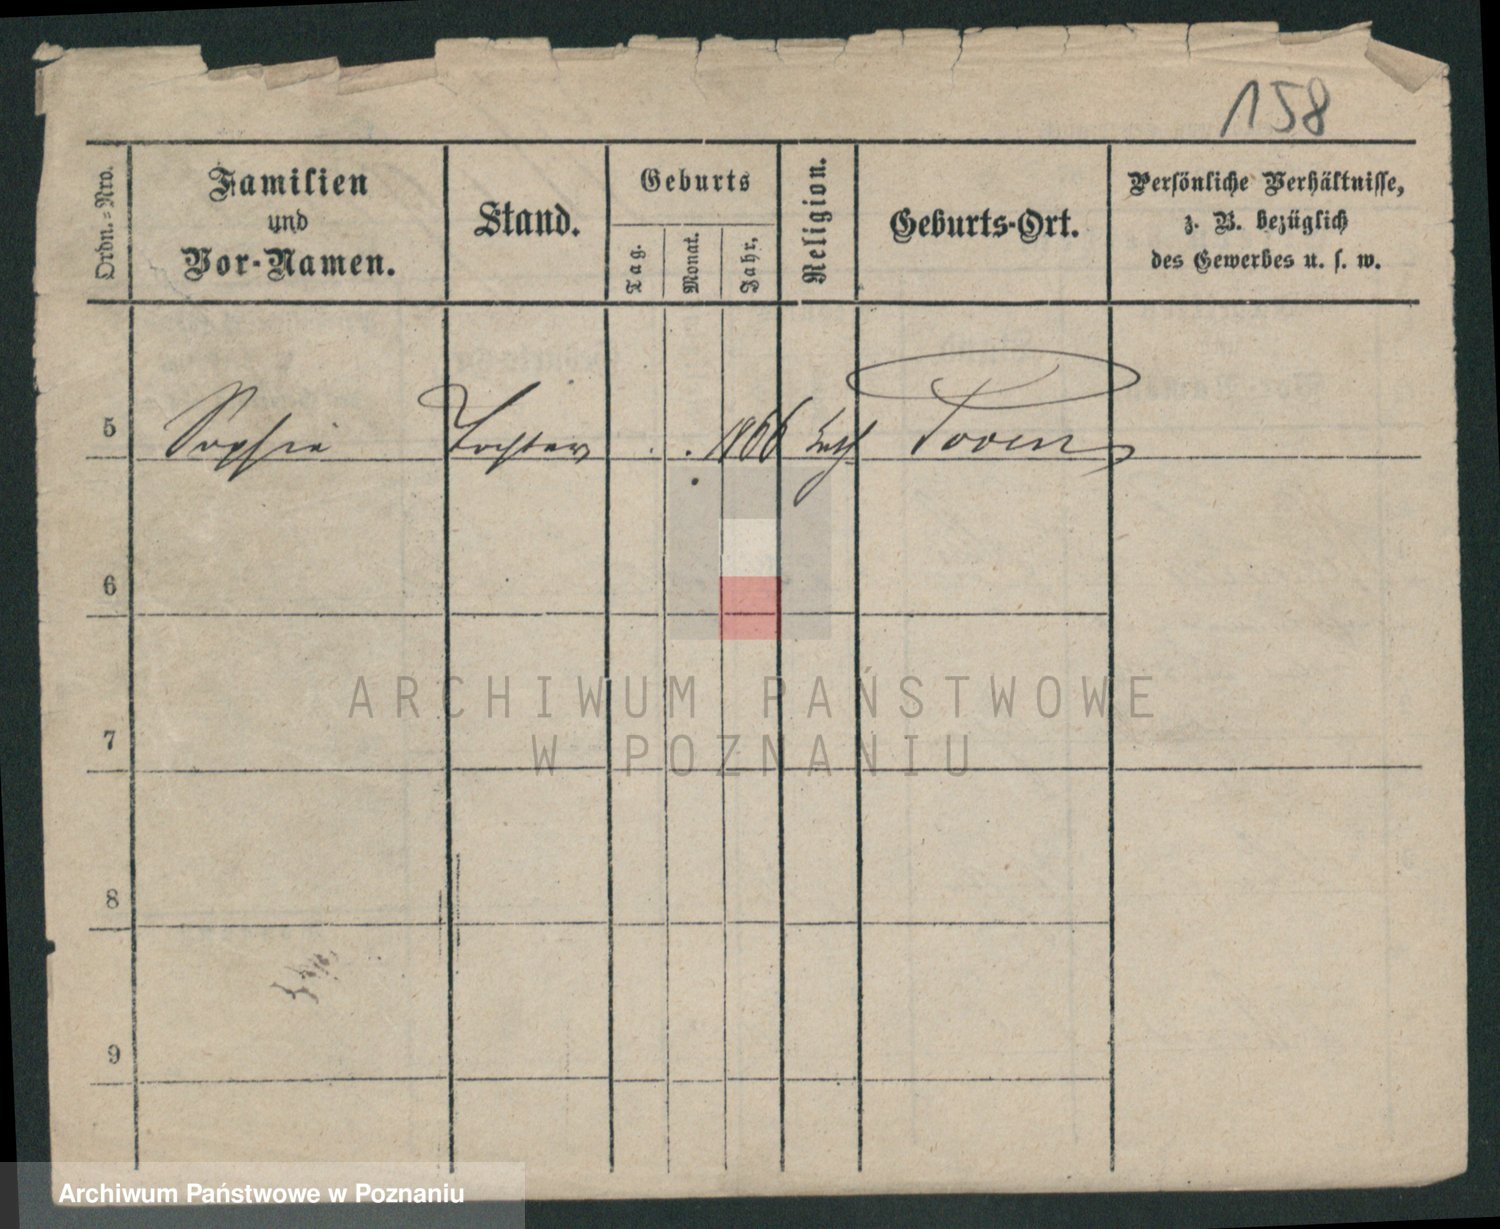 158
Ordn.=Nro.
Familien
und
Vor-Namen.
Stand.
Geburts
Tag.
Monat.
Jahr,
Religion.
Geburts-Ort.
Persönliche Verhältnisse,
z. B. bezüglich
des Gewerbes u. s. w.
5 Sophie Tochter 1866 kath Posen
6
7
8
9
ARCHIWUM PAŃSTWOWE
W POZNANIU
Archiwum Państwowe w Poznaniu